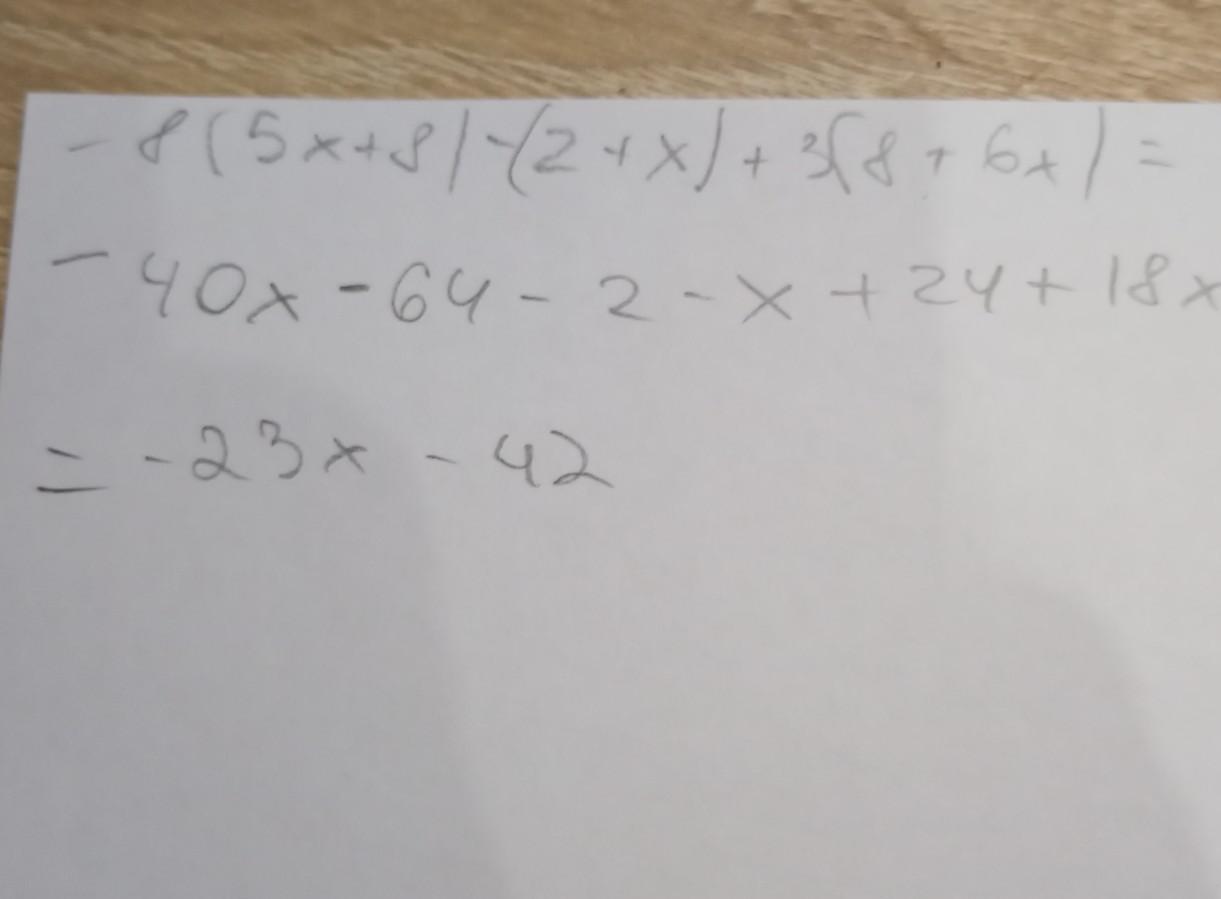 - 8(5x+8)-(2+x)+3(8+6x)=
- 40x - 64 - 2 - x + 24 + 18x
= - 23x - 42